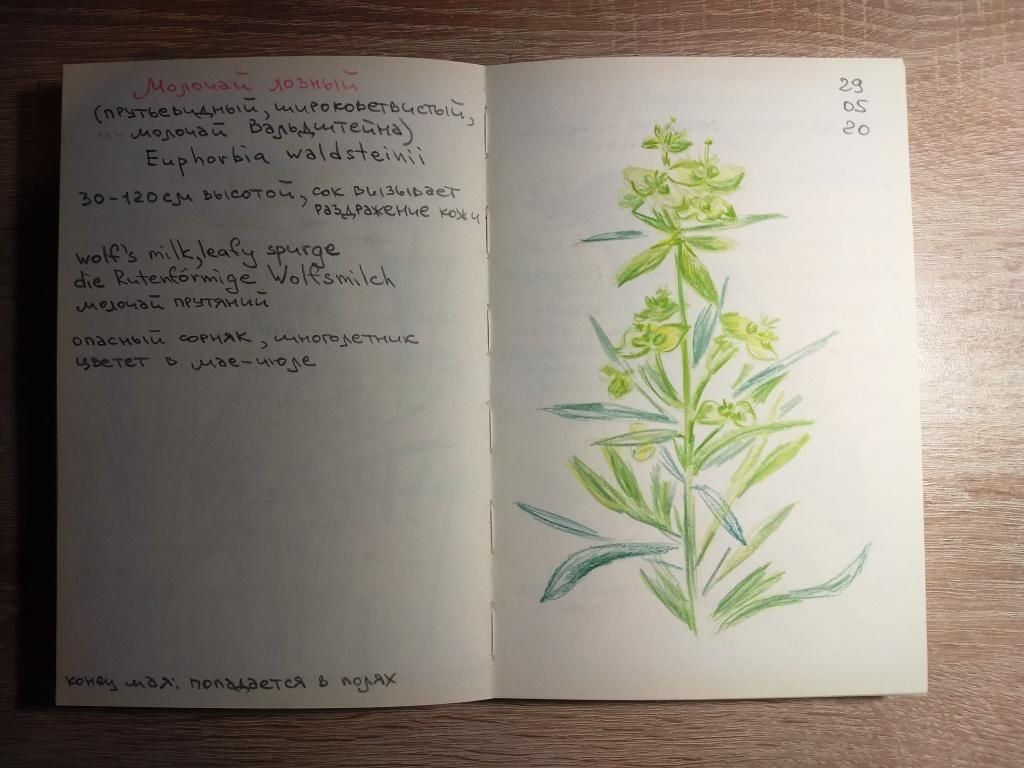 Молочай лозный
(прутьевидный, широковетвистый,
молочай Вальдштейна)
Euphorbia waldsteinii
30-120см высотой, сок визывает
раздражение кожи
wolf's milk, leafy spurge
die Rutenförmige Wolfsmilch
молочай прутяний
опасный сорняк, многолетник
цветет в мае-июле
конец мая: попадается в полях
29
05
20